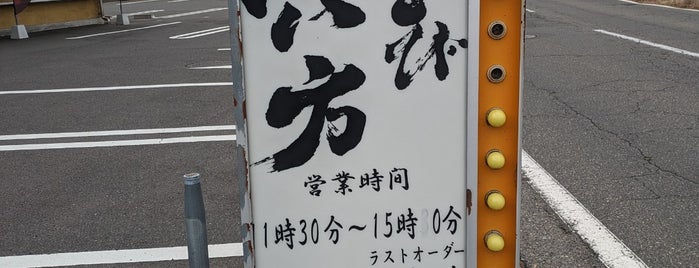 そば
方
営業時間
1時30分～15時30分
ラストオーダー